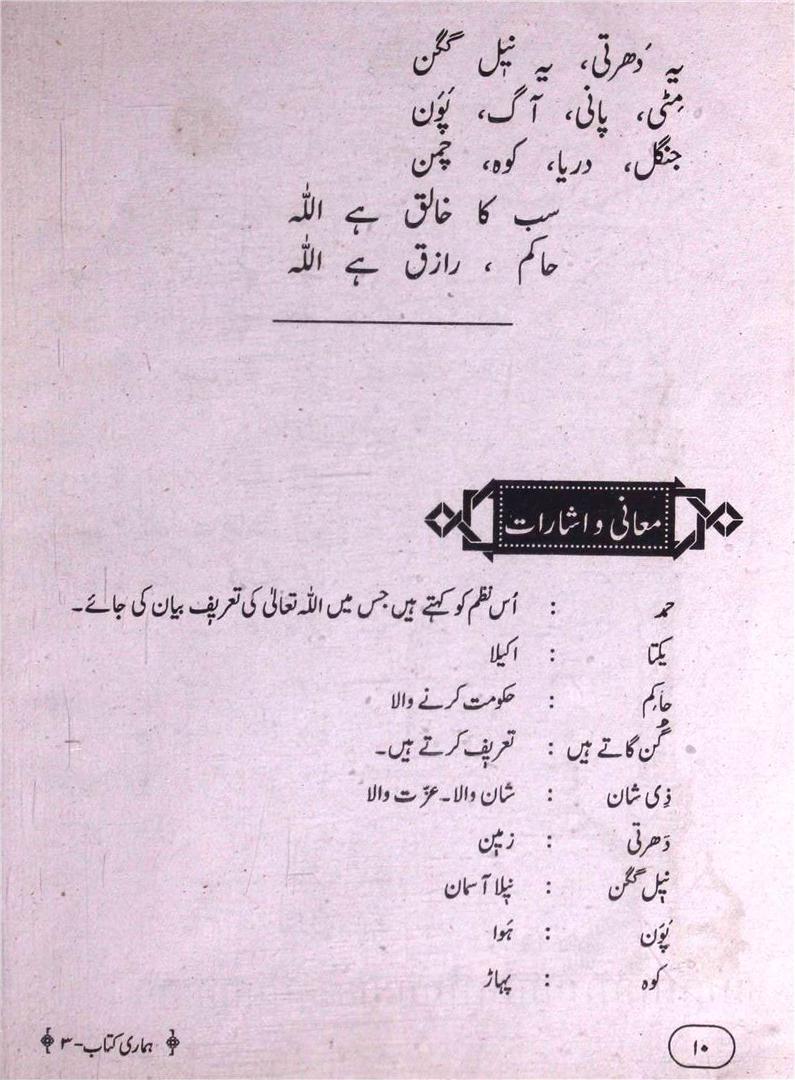 یہ دَھرتی، یہ نیٖل گگن
مِٹّی، پانی، آگ، پَوَن
جنگل، دریا، کوہ، چمن
سب کا خالق ہے اللّٰہ
حاکم ، رازق ہے اللّٰہ
معانی و اشارات
حمد : اُس نظم کو کہتے ہیں جس میں اللّٰہ تعالیٰ کی تعریٖف بیان کی جائے۔
یکتا : اکیلا
حاکِم : حکومت کرنے والا
گُن گاتے ہیں : تعریٖف کرتے ہیں۔
ذِی شان : شان والا۔ عزّت والا
دَھرتی : زمیٖن
نیٖل گگن : نیٖلا آسمان
پَوَن : ہَوا
کوہ : پہاڑ
۱۰
ہماری کتاب-۳